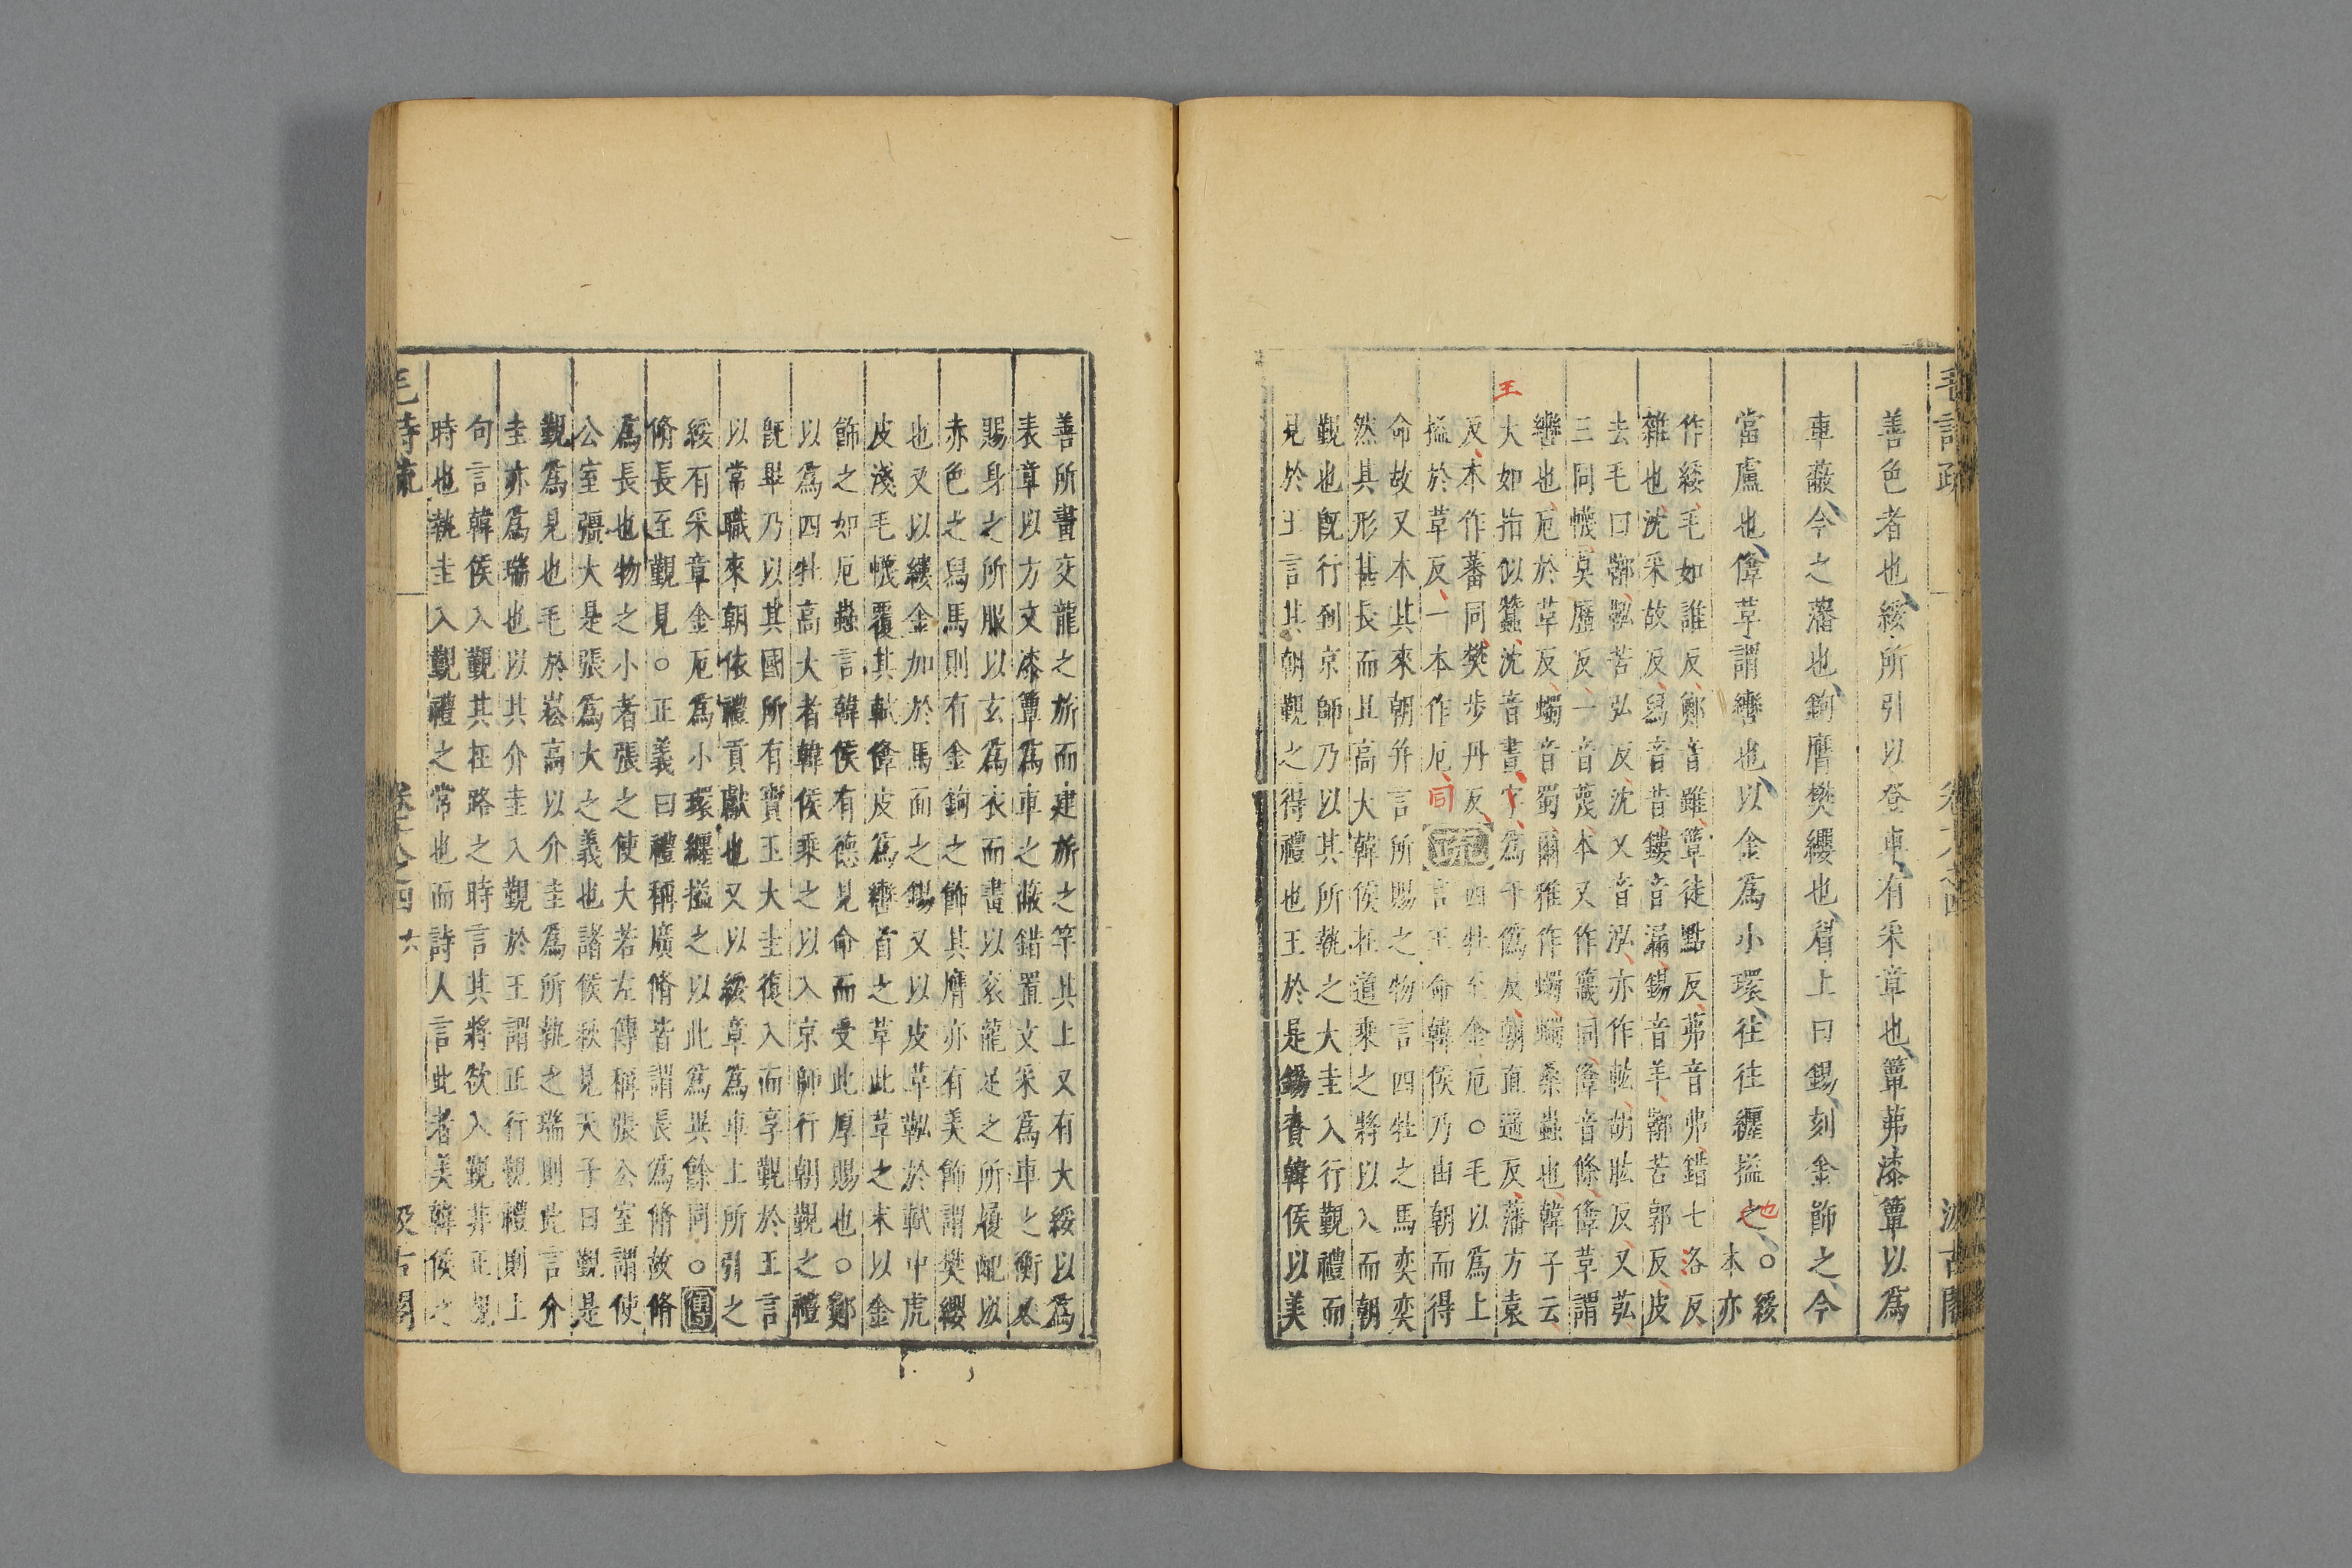 毛詩疏
卷十八之四
汲古閣
善色者也綏所引以登車有采章也簟茀漆簟以為
車蔽今之藩也鉤膺樊纓也眉上曰錫刻金飾之今
當盧也鞗革謂轡也以金為小環往往纒搤之也○綏
本亦
作綏毛如誰反鄭音雖簟徒點反茀音弗錯七洛反
雜也沈采故反舄音昔鏤音漏錫音羊鞹苦郭反皮
去毛曰鞹鞃苦弘反沈又音泓亦作𩊠胡肱反又弘
三同幭莫歷反一音蔑本又作簚同鞗音條鞗革謂
轡也厄於革反蠋音蜀爾雅作蠋蠋桑蟲也韓子云
王
大如指似蠶沈音晝字為于偽反朝直遥反藩方袁
反本作蕃同樊步丹反
搤於革反一本作厄同
正記四牡至金厄○毛以為上
言王命韓侯乃由朝而得
命故又本其來朝并言所賜之物言四牡之馬奕奕
然其形甚長而且高大韓侯在道乘之將以入而朝
覲也既行到京師乃以其所執之大圭入行覲禮而
見於王言其朝覲之得禮也王於是錫賚韓侯以美
善所畫交龍之旂而建旂之竿其上又有大綏以為
表章以方文漆簟為車之蔽錯置文采為車之衡又
賜身之所服以玄為衣而畫以衮龍足之所履配以
赤色之舄馬則有金鉤之飾其膺亦有美飾謂樊纓
也又以鏤金加於馬面之錫又以皮革鞃於軾中虎
皮淺毛幭覆其軾鞗皮為轡首之革此革之末以金
飾之如厄蟲言韓侯有德見命而受此厚賜也○鄭
以為四牡高大者韓侯乘之以入京師行朝覲之禮
既畢乃以其國所有寶玉大圭復入而享覲於王言
以常職來朝依禮貢獻也又以綏章為車上所引之
綏有采章金厄為小環纒搤之以此為異餘同○傳
脩長至覲見○正義曰禮稱廣脩皆謂長為脩故脩
為長也物之小者張之使大若左傳稱張公室謂使
公室張大是張為大之義也諸侯秋見天子曰覲是
覲為見也毛於崧高以介圭為所執之瑞則此言介
圭亦為瑞也以其介圭入覲於王謂正行覲禮則上
句言韓侯入覲其在路之時言其將欲入覲非正覲
時也執圭入覲禮之常也而詩人言此者美韓侯之
毛詩疏
卷十八之四
六
汲古閣